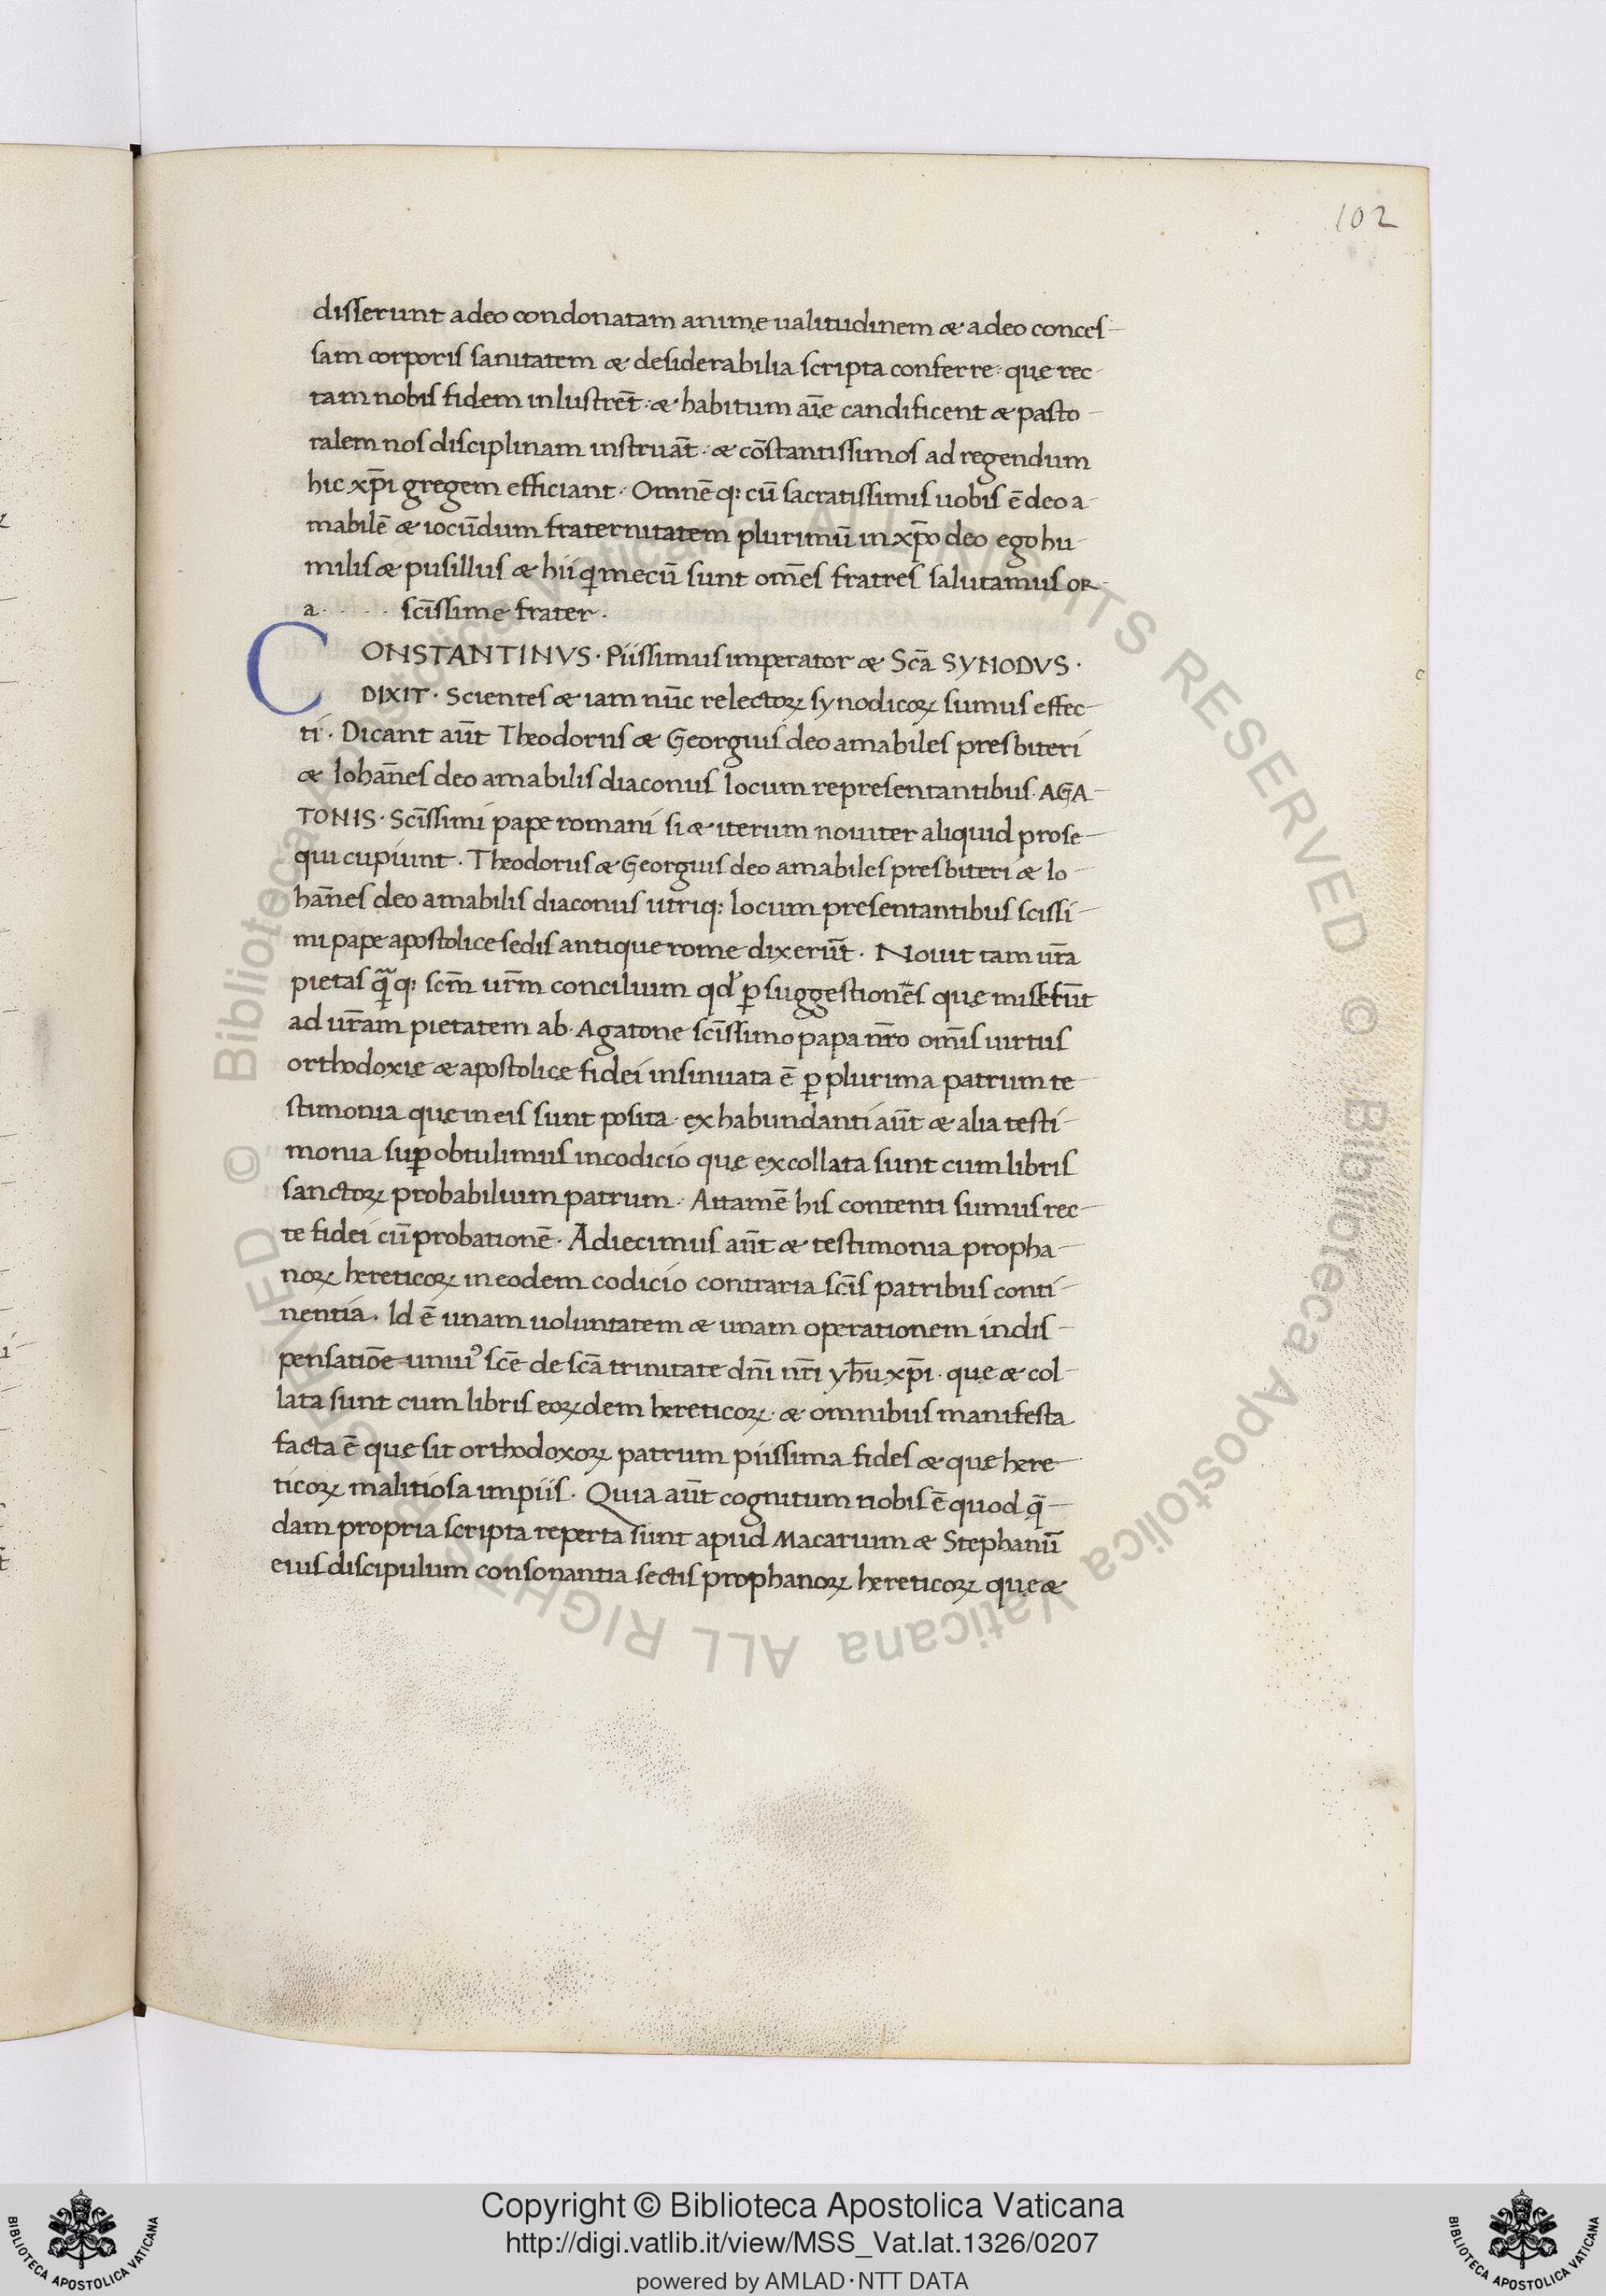 102
disserunt a deo condonatam animę ualitudinem & a deo conces-
sam corporis sanitatem & desiderabilia scripta conferre· quę rec-
tam nobis fidem inlustrēt· & habitum aīe candificent & pasto-
ralem nos disciplinam instruāt· & cōstantissimos ad regendum
hic xp̄i gregem efficiant· Omnē q; cū sacratissimis uobis ē deo a-
mabilē & iocūdum fraternitatem plurimū in xp̄o deo ego hu-
milis & pusillus & hii qi mecū sunt om̄es fratres salutamus OR-
a· · · · · sc̄issime frater·
CONSTANTINVS· Piissimus imperator & Sc̄a SYNODVS·
DIXIT· Scientes & iam nūc relectoꝝ synodicoꝝ sumus effec-
ti· Dicant aūt Theodorus & Georgius deo amabiles presbiteri
& Iohān̄es deo amabilis diaconus locum representantibus· AGA-
TONIS· Sc̄issimi papę romani si & iterum nouiter aliquid prose-
qui cupiunt· Theodorus & Georgius deo amabiles presbiteri & Io-
hān̄es deo amabilis diaconus utriq; locum presentantibus scissi-
mi pape apostolice sedis antique rome dixerūt· Nouit tam ur̄a
pietas q; sc̄m ur̄m concilium qd ꝑ suggestionēs quę miserūt
ad ur̄am pietatem ab Agatone sc̄issimo papa nr̄o om̄is uirtus
orthodoxię & apostolicę fidei insinuata ē ꝑ plurima patrum te-
stimonia quę in eis sunt posita· ex habundanti aūt & alia testi-
monia suꝑ obtulimus in codicio quę ex collata sunt cum libris
sanctoꝝ probabilium patrum· Attamē his contenti sumus rec-
te fidei cū probationē· Adiecimus aūt & testimonia propha-
noꝝ hereticoꝝ in eodem codicio contraria sc̄is patribus conti-
nentia· Id ē unam uoluntatem & unam operationem in dis-
pensatiōe uniuꝰ sc̄e de sc̄a trinitate dn̄i nr̄i yh̄u xp̄i· quę & col-
lata sunt cum libris eoꝝdem hereticoꝝ· & omnibus manifesta
facta ē quę sit orthodoxoꝝ patrum piissima fides & quę here-
ticoꝝ malitiosa impiis· Quia aūt cognitum nobis ē quod q̄-
dam propria scripta reperta sunt apud Macarium & Stephanū
eius discipulum consonantia sectis prophanoꝝ hereticoꝝ quę &
© Biblioteca Apostolica Vaticana ALL RIGHTS RESERVED © Biblioteca Apostolica Vaticana ALL RIGHTS RESERVED
BIBLIOTECA APOSTOLICA VATICANA
Copyright © Biblioteca Apostolica Vaticana
http://digi.vatlib.it/view/MSS_Vat.lat.1326/0207
powered by AMLAD·NTT DATA
BIBLIOTECA APOSTOLICA VATICANA